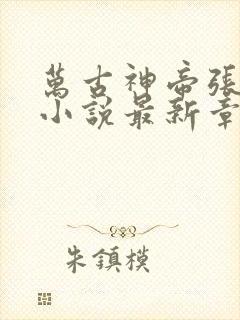 萬古神帝張
小說最新章
朱鎮模